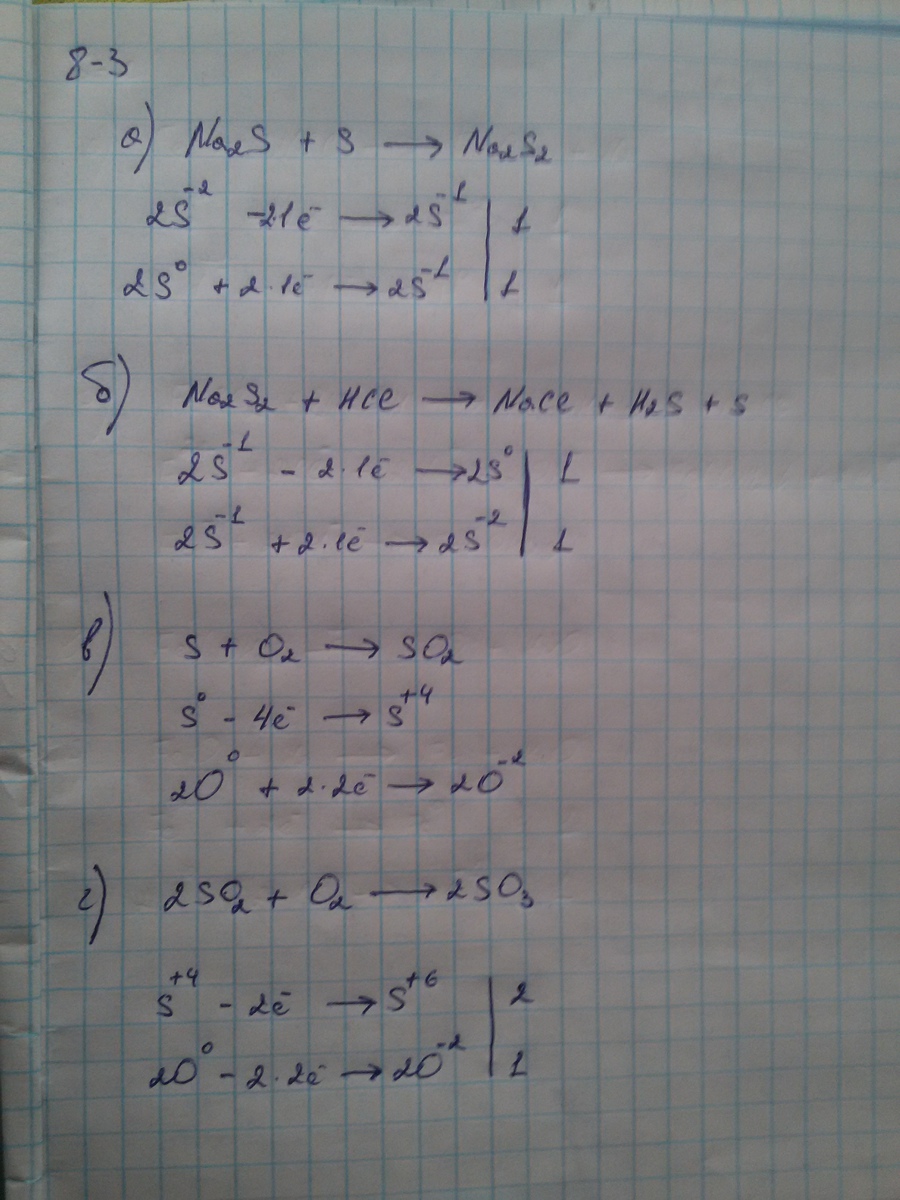 8-3
а) Na₂S + S → Na₂S₂
2S⁻² -21ē → 2S⁻¹ | 1
2S⁰ + 2·1ē → 2S⁻¹ | 1
б) Na₂S₂ + HCl → NaCl + H₂S + S
2S⁻¹ - 2·1ē → 2S⁰ | 1
2S⁻¹ + 2·1ē → 2S⁻² | 1
в) S + O₂ → SO₂
S⁰ - 4ē → S⁺⁴
2O⁰ + 2·2ē → 2O⁻²
г) 2SO₂ + O₂ → 2SO₃
S⁺⁴ - 2ē → S⁺⁶ | 2
2O⁰ - 2·2ē → 2O⁻² | 1